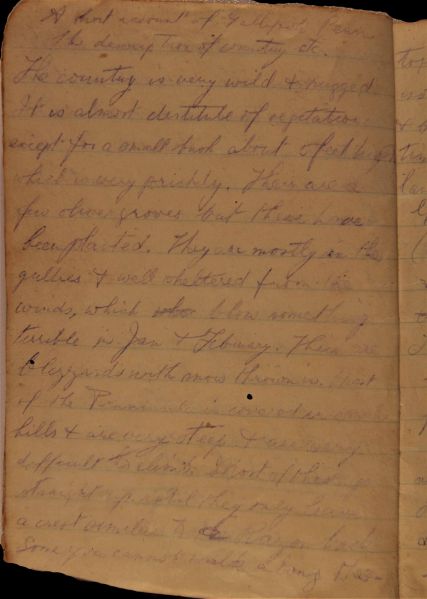 A short account of Gallipoli Penn
the description of country etc.
The country is very wild & rugged
It is almost destitute of vegetation
except for a small bush about feet high
which is very prickly. There are a
few olive groves but these have
been planted. They are mostly in the
gullies & well sheltered from the
winds, which blow something
terrible in Jan & Febuary. There are
blizzards with snow thrown in. Most
of the Penninsula is covered in small
hills & are very steep & are very
difficult to climb. Most of these go
straight up until they only leave
a crest similar to a Razor back
Some you cannot walk along